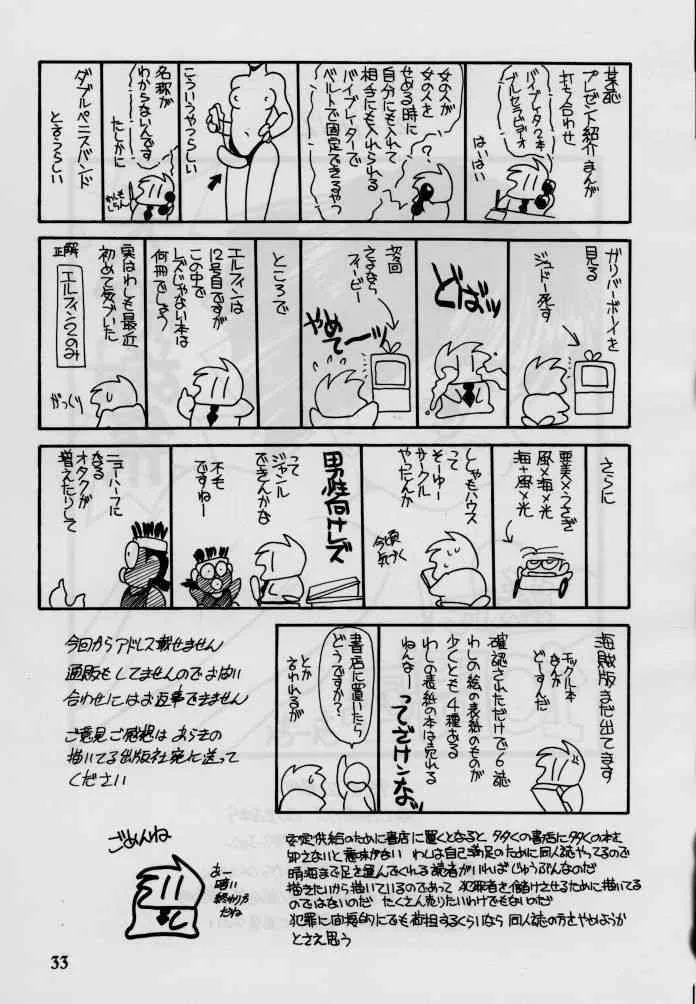 某誌
プレゼント紹介まんが
打ち合わせ
バイブレイタ2本
ブルセラビデオ
はいはい
女の人が
女の人を
せめる時に
自分にも入れて
相手にも入れられる
バイブレイターで
ベルトで固定できるやつ
?
こういうやつらしい
名称が
わからないんです
たしかに
わしも
しらん
ダブルペニスバンド
となうらしい
ガリバーボーイを
見る
ジュドー死す
どばッ
次回
さよなら
フィービー
やめて〜ッ
ところで
エルフィンは
12号目ですが
この中で
レズじゃない本は
何冊でしょう
実はわしも最近
初めて気づいた
正解
エルフィン2のみ
がっくり
さらに
亜美×うさぎ
風×海×光
海+風×光
ししゃもハウス
って
そーゆー
サークル
やったんか
今頃
気づく
男性向けレズ
って
ジャンル
できんかな
不毛
ですねー
ニューハーフに
なる
オタクが
増えたりして
海賊版まだ出てます
モッツル本
なんか
どーすんだ
確認されただけで6誌
わしの絵の表紙のものが
少くとも4種ある
わしの表紙の本は売れる
ねんなー
ってゞけンなッ
書店に置いたら
どうですか?
とか
言われるが
今回からアドレス載せません
通販もしてませんのでお問い
合わせにはお返事できません
ご意見ご感想は あらきの
描いてる出版社宛に送って
ください
ごめんね
あー
暗い
終わり方
だね
安定供給のために書店に置くとなると 多くの書店に多くの本を
卸さないと意味がない わしは自己満足のために同人誌やってるので
晴海まで足を運んでくれる読者がいればじゅうぶんなのだ
描きたいから描いているのであって 犯罪者を儲けさせるために描いてる
のではないのだ たくさん売りたいわけでもないのだ
犯罪に間接的にでも荷担するくらいなら 同人誌の方をやめようか
とさえ思う
33